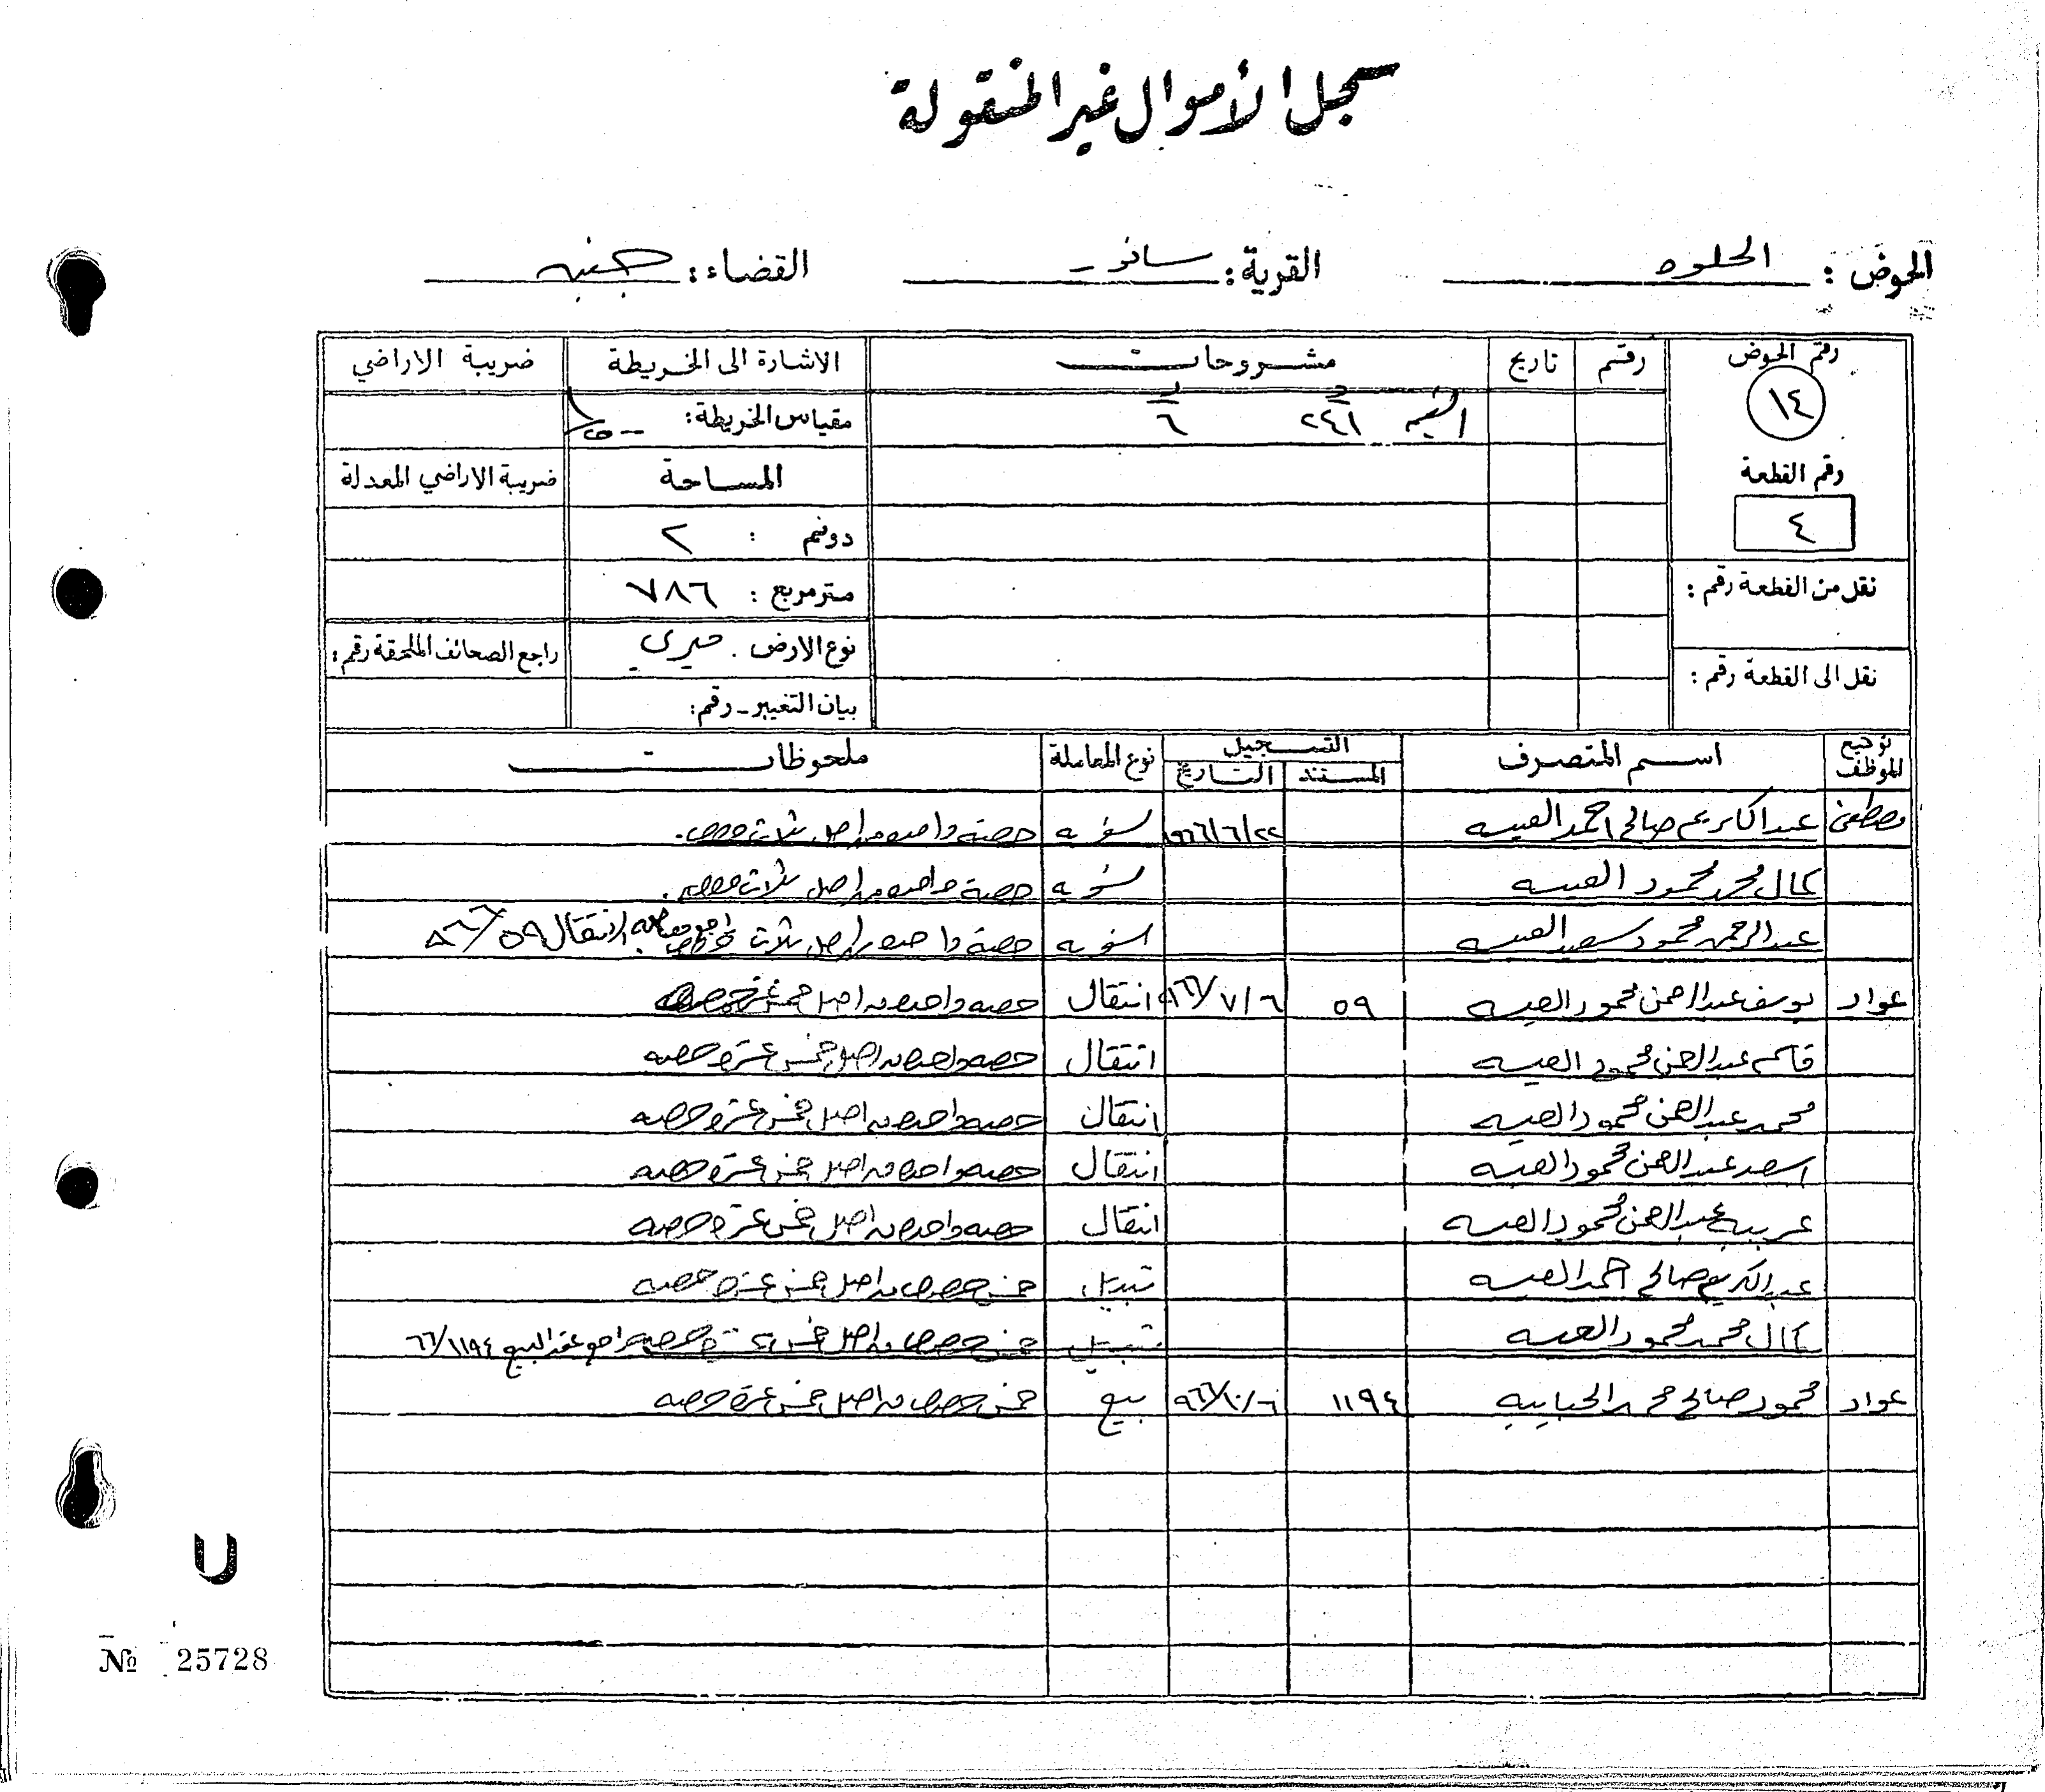 سجل الأموال غير المنقولة
الحوض : الحلوه القرية : سانور القضاء : جنين
رقم الحوض رقم تاريخ مشروحات الاشارة الى الخريطة ضريبة الاراضي
١٤ د ٢٤١ ٦ مقياس الخريطة :
رقم القطعة المساحة ضريبة الاراضي المعدلة
٤ دونم : ٢
نقل من القطعة رقم : متر مربع : ٧٨٦
نوع الارض . ميري راجع الصحائف الملحقة رقم :
نقل الى القطعة رقم : بيان التغيير - رقم :
توقيع الموظف اسم المتصرف التسجيل نوع المعاملة ملحوظات
المستند التاريخ
مصطفى عبد الكريم صالح احمد العيسه ١٩٦٦/٦/٢٢ تسويه حصة واحده من اصل ثلاث حصص .
كمال محمد محمود العيسه تسويه حصة واحده من اصل ثلاث حصص .
عبد الرحمن محمود سعيد العيسه تسويه حصة واحده من اصل ثلاث حصص راجع معاملة الانتقال ٥٩/٩٦٦
عواد يوسف عبد الرحمن محمود العيسه ٥٩ ٩٦٦/٧/٦ انتقال حصه واحده من اصل خمس عشره حصه
قاسم عبد الرحمن محمود العيسه انتقال حصه واحده من اصل خمس عشره حصه
محمد عبد الرحمن محمود العيسه انتقال حصه واحده من اصل خمس عشره حصه
اسعد عبد الرحمن محمود العيسه انتقال حصه واحده من اصل خمس عشره حصه
عربيه عبد الرحمن محمود العيسه انتقال حصه واحده من اصل خمس عشره حصه
عبد الكريم صالح احمد العيسه تبديل خمس حصص من اصل خمس عشره حصه
كمال محمد محمود العيسه تبديل خمس حصص من اصل خمس عشره حصه راجع عقد البيع ٦٦/١١٩٤
عواد محمود صالح محمد الحبايبه ١١٩٤ ٩٦٦/١٠/٦ بيع خمس حصص من اصل خمس عشره حصه
U
№ 25728